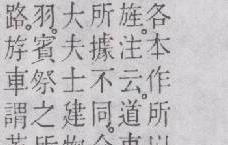 各本作所
旌。注云。道
所據不同。
大夫士建物
羽。賓祭之
路。斿車謂